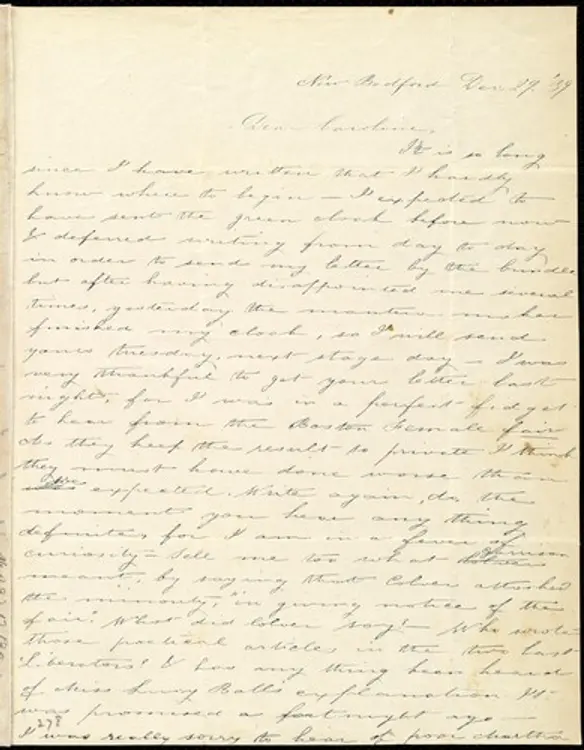 New Bedford Dec. 29. '39
Dear Caroline,
It is so long
since I have written that I hardly
know where to begin – I expected to
have sent the green cloak before now
& deferred writing from day to day
in order to send my letter by the bundle
but after having disappointed me several
times, yesterday the mantua maker
finished my cloak, so I will send
yours tuesday, next stage day – I was
very thankful to get your letter last
night, for I was in a perfect fidget
to hear from the Boston Female fair
As they keep the result so private I think
they must have done worse than
we expected. Write again, do, the
moment you hear any thing
definite, for I am in a fever of
curiosity – Tell me too what Garrison
meant, by saying that Colver attacked
the minority, "in giving notice of the
fair." What did Colver say? – Who wrote
those poetical articles in the two last
Liberators? & has any thing been heard
of Miss Lucy Balls explanation It
was promised a fortnight ago –
I was really sorry to hear of poor
278